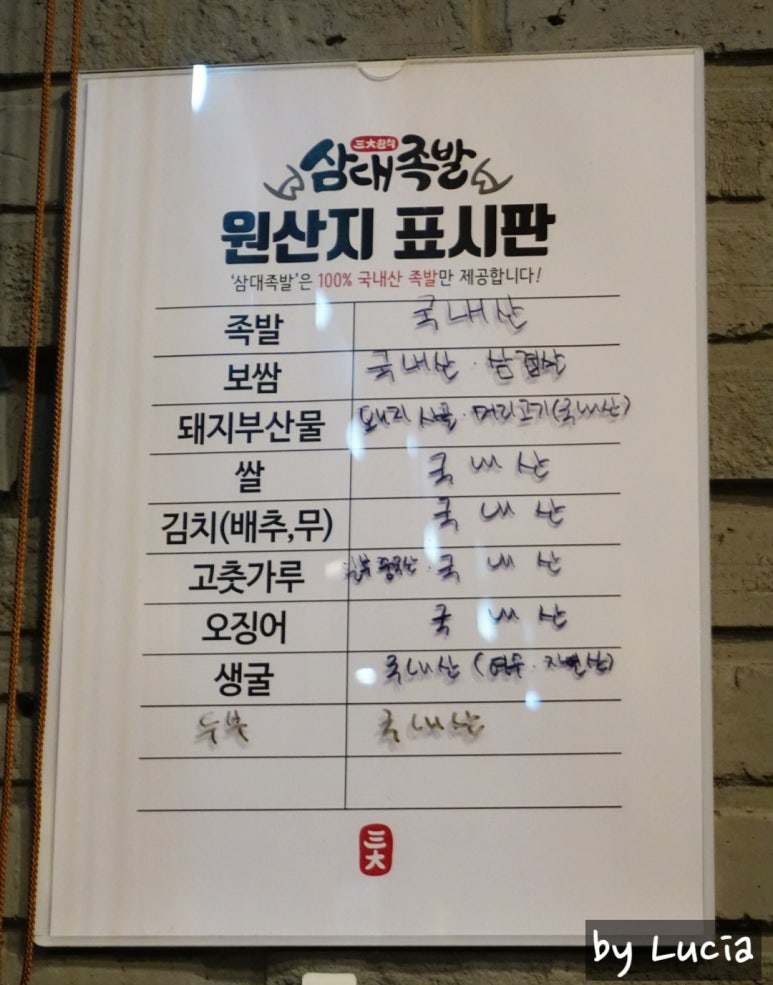 三大원칙
삼대족발
원산지 표시판
'삼대족발'은 100% 국내산 족발만 제공합니다!
족발 국내산
보쌈 국내산 · 삼겹살
돼지부산물 돼지 사골 · 머리고기(국내산)
쌀 국내산
김치(배추,무) 국내산
고춧가루 중국산 · 국내산
오징어 국내산
생굴 국내산 (여수 · 자연산)
두부 국내산
三大
by Lucia